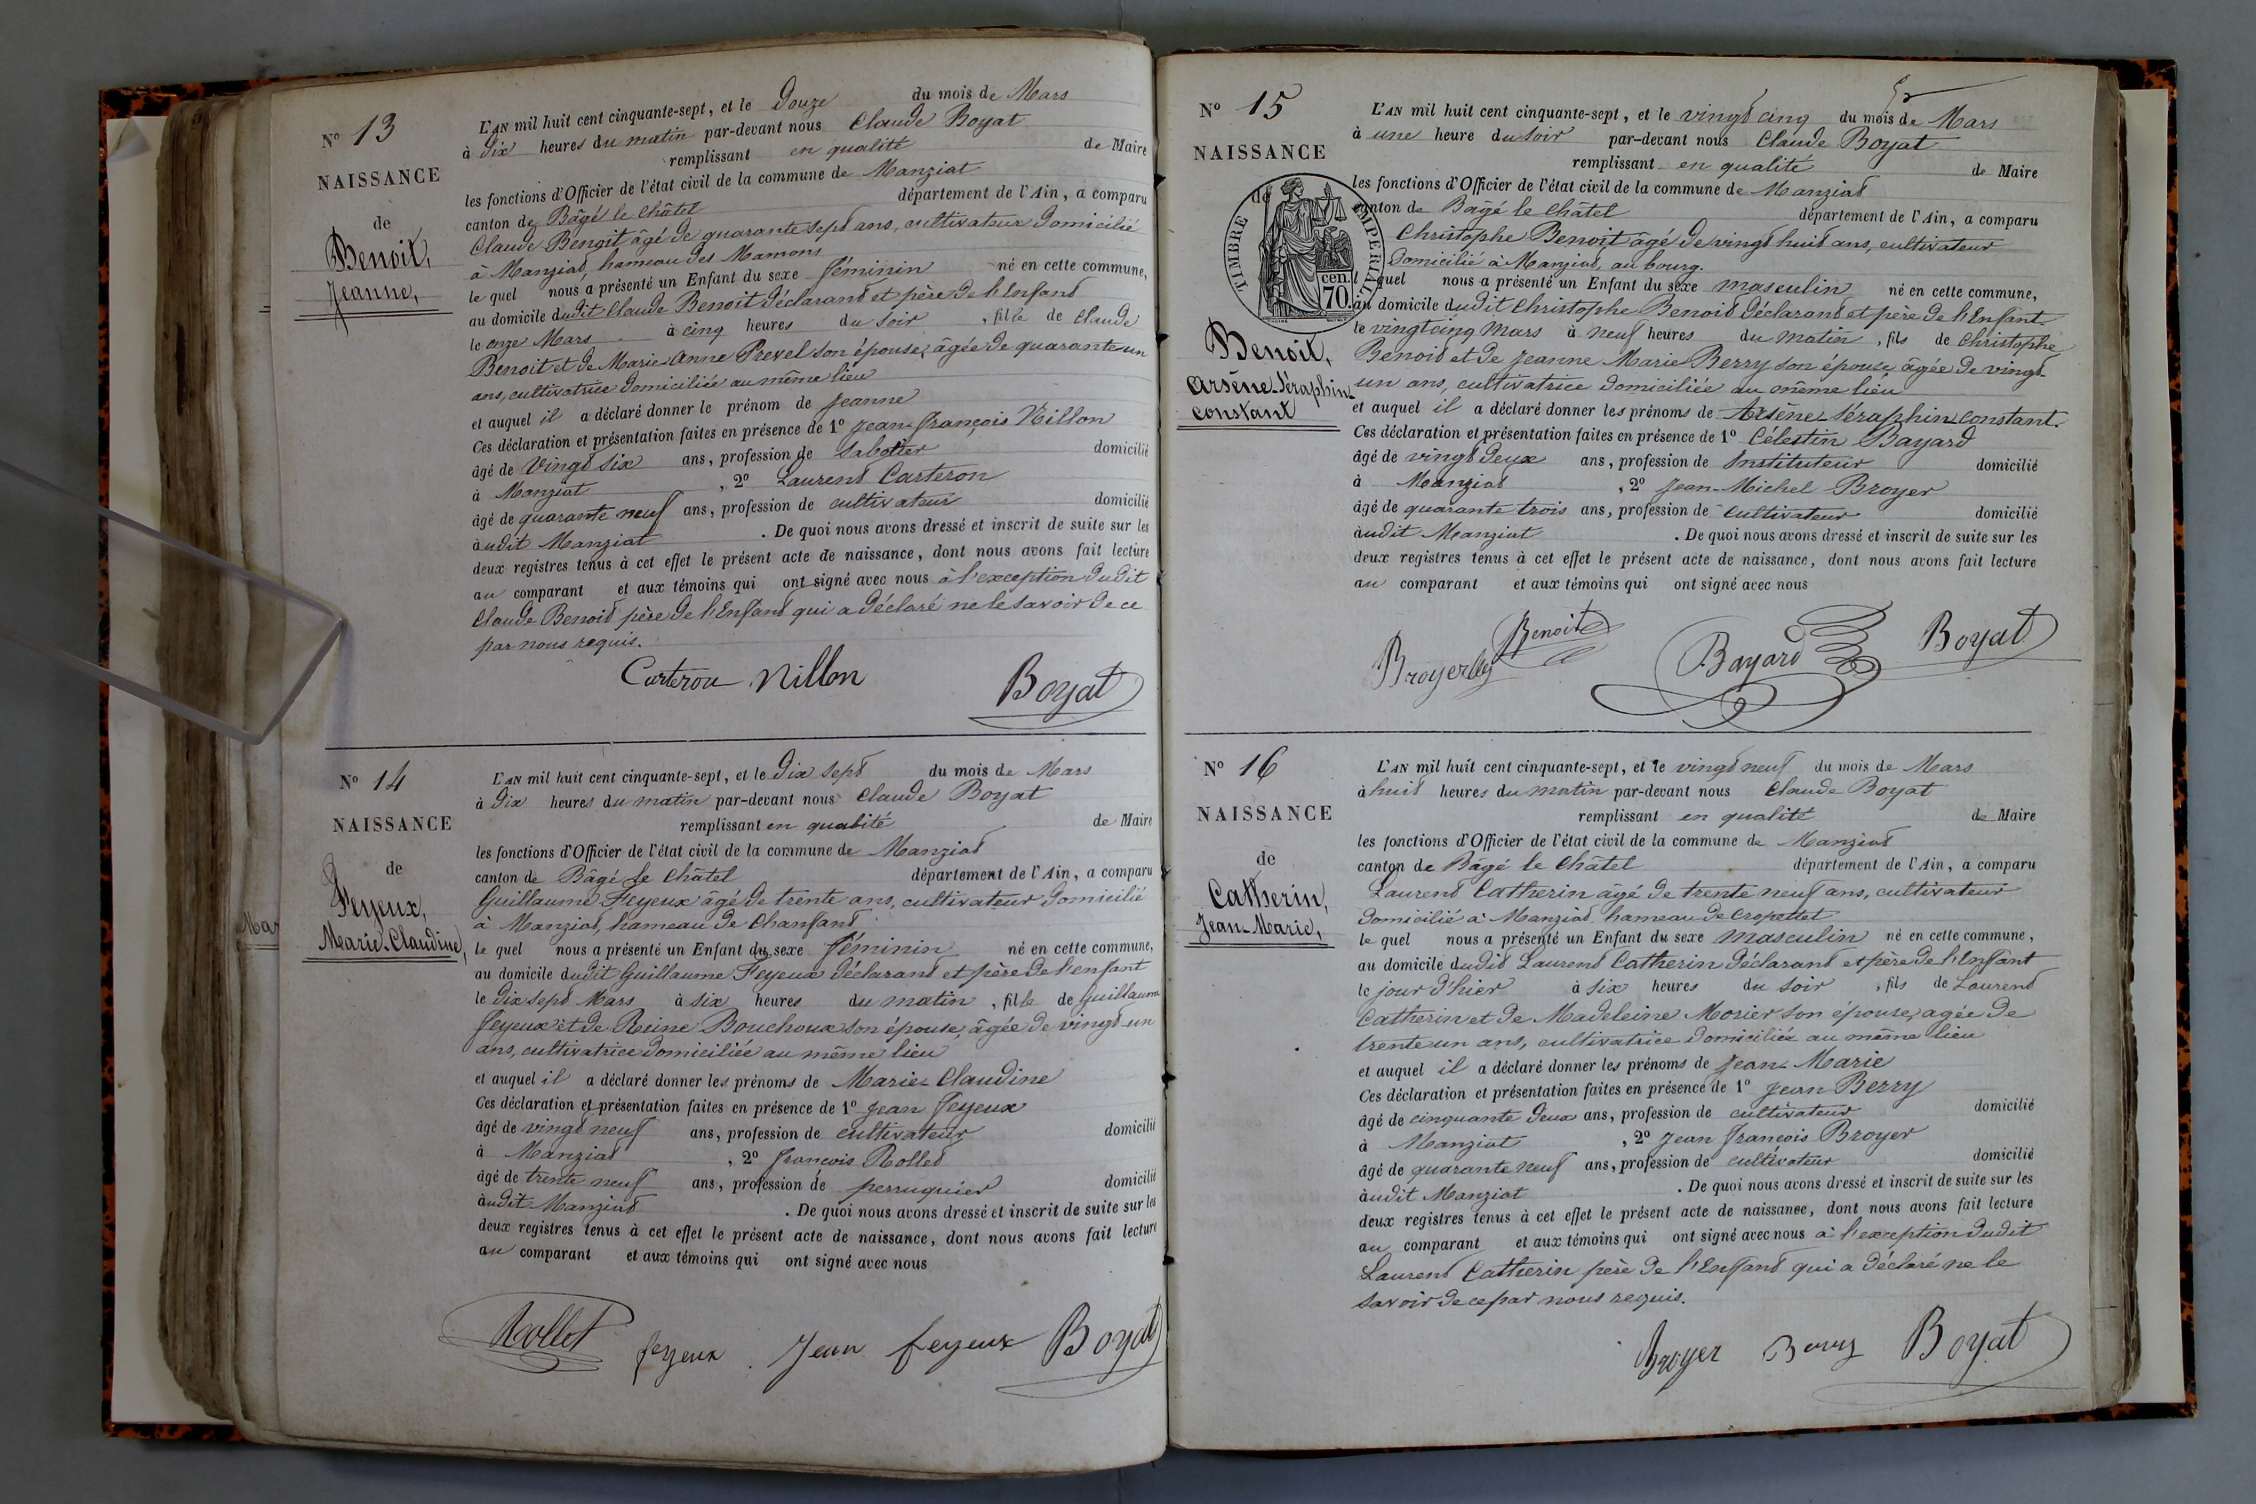 N° 13
NAISSANCE
de
Benoit,
Jeanne,
L'AN mil huit cent cinquante-sept, et le Douze du mois de Mars
à Dix heures du matin par-devant nous Claude Boyat
remplissant en qualité de Maire
les fonctions d'Officier de l'état civil de la commune de Manziat
canton de Bâgé le Châtel département de l'Ain, a comparu
Claude Benoit âgé de quarante sept ans, cultivateur domicilié
à Manziat, hameau des Mamons
le quel nous a présenté un Enfant du sexe féminin né en cette commune,
au domicile dudit Claude Benoit déclarant et père de l'Enfant
le onze Mars à cinq heures du soir, fille de Claude
Benoit et de Marie Anne Prevel son épouse, âgée de quarante un
ans, cultivatrice domiciliée au même lieu
et auquel il a déclaré donner le prénom de Jeanne
Ces déclaration et présentation faites en présence de 1° Jean-françois Nillon
âgé de vingt six ans, profession de sabotier domicilié
à Manziat, 2° Laurent Carteron
âgé de quarante neuf ans, profession de cultivateur domicilié
àudit Manziat. De quoi nous avons dressé et inscrit de suite sur les
deux registres tenus à cet effet le présent acte de naissance, dont nous avons fait lecture
au comparant et aux témoins qui ont signé avec nous à l'exception dudit
Claude Benoit père de l'Enfant qui a déclaré ne le savoir de ce
par nous requis.
Carteron Nillon Boyat
N° 14
NAISSANCE
de
Feyeux,
Marie-Claudine,
L'AN mil huit cent cinquante-sept, et le Dix sept du mois de Mars
à Dix heures du matin par-devant nous Claude Boyat
remplissant en qualité de Maire
les fonctions d'Officier de l'état civil de la commune de Manziat
canton de Bâgé le Châtel département de l'Ain, a comparu
Guillaume Feyeux âgé de trente ans, cultivateur domicilié
à Manziat, hameau de Chanfant
le quel nous a présenté un Enfant du sexe féminin né en cette commune,
au domicile dudit Guillaume Feyeux déclarant et père de l'enfant
le dix sept Mars à six heures du matin, fille de Guillaume
feyeux et de Reine Bouchoux son épouse, âgée de vingt-un
ans, cultivatrice domiciliée au même lieu
et auquel il a déclaré donner les prénoms de Marie-Claudine
Ces déclaration et présentation faites en présence de 1° Jean feyeux
âgé de vingt neuf ans, profession de cultivateur domicilié
à Manziat, 2° françois Rollet
âgé de trente neuf ans, profession de perruquier domicilié
àudit Manziat. De quoi nous avons dressé et inscrit de suite sur les
deux registres tenus à cet effet le présent acte de naissance, dont nous avons fait lecture
au comparant et aux témoins qui ont signé avec nous
Rollet feyeux Jean feyeux Boyat
Mar
N° 15
NAISSANCE
de
TIMBRE IMPERIAL
70. cen.
Benoit,
Arsène-Séraphin-
Constant
L'AN mil huit cent cinquante-sept, et le vingt cinq du mois de Mars
à une heure du soir par-devant nous Claude Boyat
remplissant en qualité de Maire
les fonctions d'Officier de l'état civil de la commune de Manziat
canton de Bâgé le Châtel département de l'Ain, a comparu
Christophe Benoit âgé de vingt huit ans, cultivateur
domicilié à Manziat, au bourg.
le quel nous a présenté un Enfant du sexe masculin né en cette commune,
au domicile dudit Christophe Benoit déclarant et père de l'Enfant
le vingt cinq Mars à neuf heures du matin, fils de Christophe
Benoit et de Jeanne Marie Berry son épouse âgée de vingt-
un ans, cultivatrice domiciliée au même lieu
et auquel il a déclaré donner les prénoms de Arsène-Séraphin-Constant.
Ces déclaration et présentation faites en présence de 1° Célestin Bayard
âgé de vingt deux ans, profession de Instituteur domicilié
à Manziat, 2° Jean-Michel Broyer
âgé de quarante trois ans, profession de cultivateur domicilié
àudit Manziat. De quoi nous avons dressé et inscrit de suite sur les
deux registres tenus à cet effet le présent acte de naissance, dont nous avons fait lecture
au comparant et aux témoins qui ont signé avec nous
Benoit Bayard Boyat
N° 16
NAISSANCE
de
Catherin,
Jean-Marie,
L'AN mil huit cent cinquante-sept, et le vingt neuf du mois de Mars
à huit heures du matin par-devant nous Claude Boyat
remplissant en qualité de Maire
les fonctions d'Officier de l'état civil de la commune de Manziat
canton de Bâgé le Châtel département de l'Ain, a comparu
Laurent Catherin âgé de trente neuf ans, cultivateur
domicilié à Manziat, hameau de Cropettet
le quel nous a présenté un Enfant du sexe masculin né en cette commune,
au domicile dudit Laurent Catherin déclarant et père de l'Enfant
le jour d'hier à six heures du soir, fils de Laurent
Catherin et de Madeleine Morier son épouse, agée de
trente un ans, cultivatrice domiciliée au même lieu
et auquel il a déclaré donner les prénoms de Jean-Marie
Ces déclaration et présentation faites en présence de 1° Jean Berry
âgé de cinquante deux ans, profession de cultivateur domicilié
à Manziat, 2° Jean françois Broyer
âgé de quarante neuf ans, profession de cultivateur domicilié
àudit Manziat. De quoi nous avons dressé et inscrit de suite sur les
deux registres tenus à cet effet le présent acte de naissance, dont nous avons fait lecture
au comparant et aux témoins qui ont signé avec nous à l'exception dudit
Laurent Catherin père de l'Enfant qui a déclaré ne le
savoir de ce par nous requis.
Broyer Berry Boyat